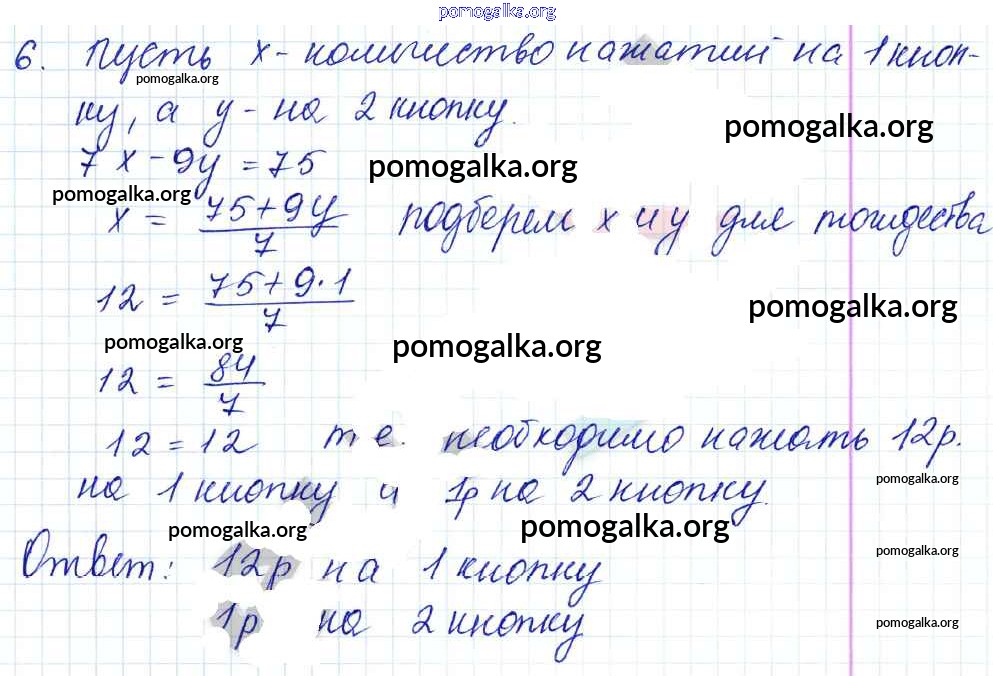 pomogalka.org
6. Пусть x - количество нажатий на 1 кноп-
pomogalka.org
ку, а y - на 2 кнопку.
pomogalka.org
7x - 9y = 75
pomogalka.org
pomogalka.org
x = (75+9y)/7 подберем x и y для тождества
12 = (75+9·1)/7
pomogalka.org
pomogalka.org
pomogalka.org
12 = 84/7
12 = 12 т е. необходимо нажать 12р.
pomogalka.org
на 1 кнопку и 1р на 2 кнопку.
pomogalka.org
pomogalka.org
pomogalka.org
Ответ: 12р на 1 кнопку
1р на 2 кнопку
pomogalka.org